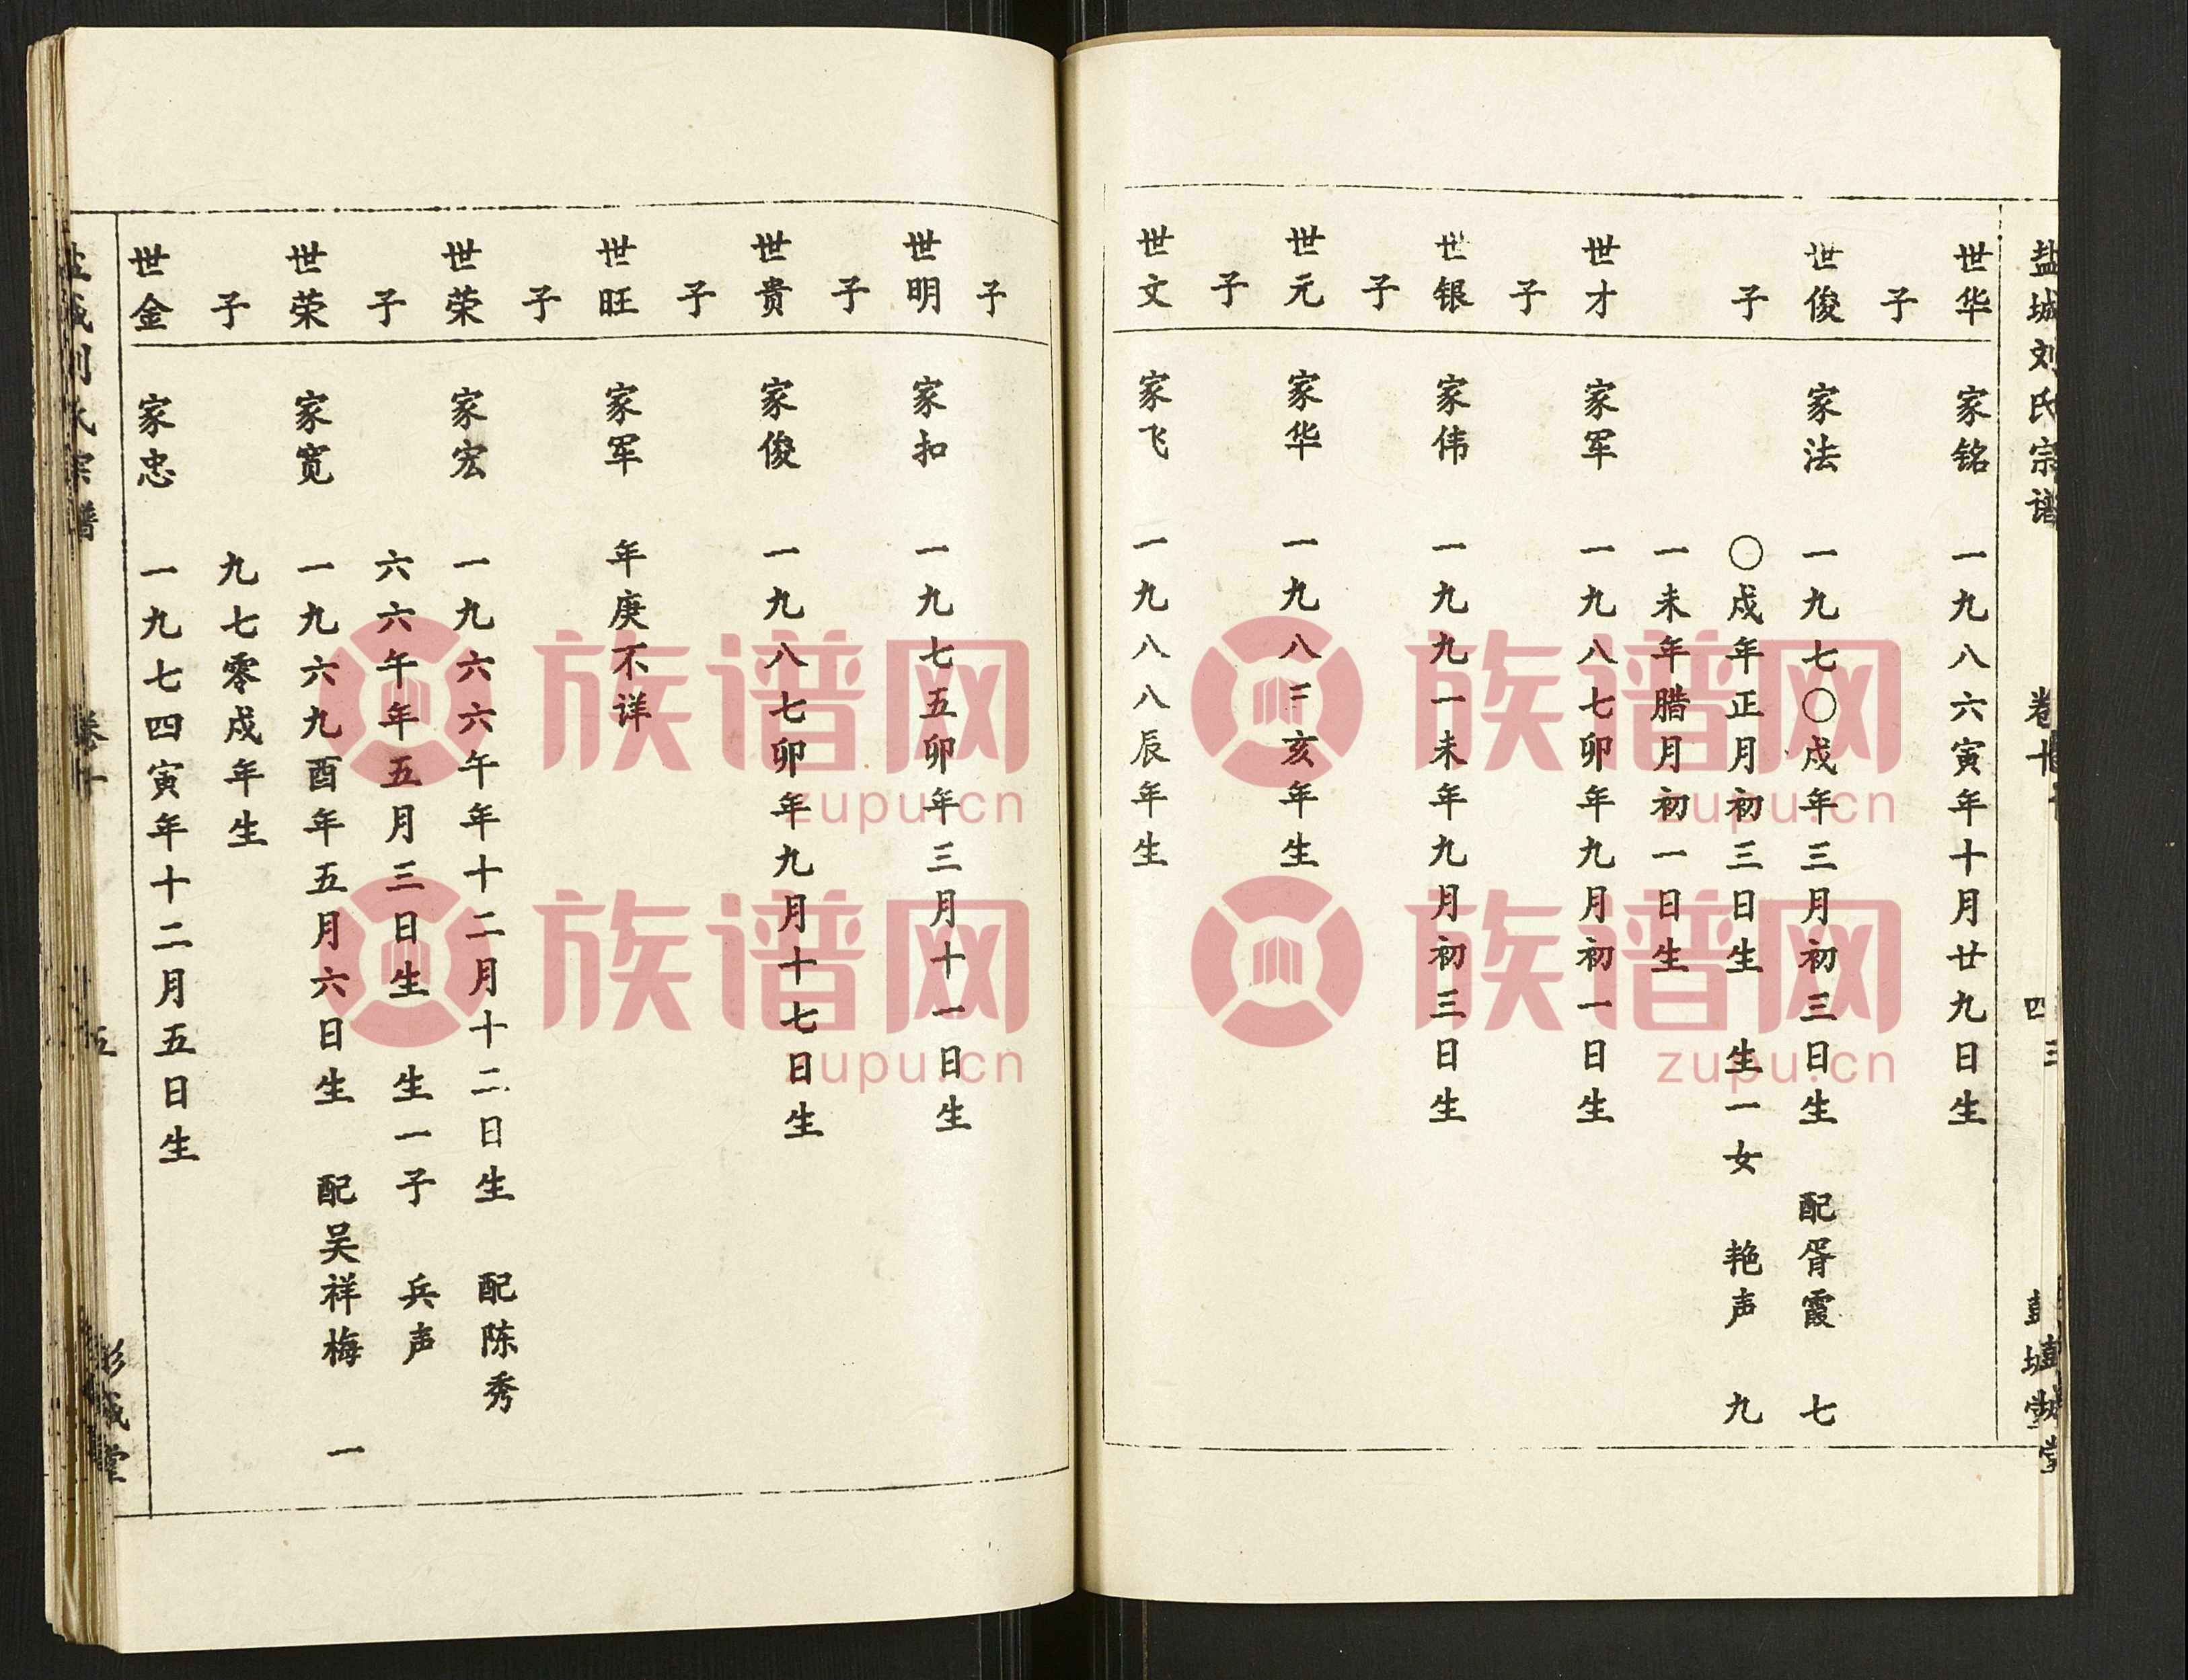 盐城刘氏宗谱 卷十 四 彭城堂
世华 家铭 一九八六寅年十月廿九日生
子
世俊 家法 一九七〇戌年三月初三日生 配胥霞 七
子 〇戌年正月初三日生 生一女 艳声 九
一未年腊月初一日生
世才 家军 一九八七卯年九月初一日生
子
世银 家伟 一九九一未年九月初三日生
子
世元 家华 一九八三亥年生
子
世文 家飞 一九八八辰年生
子
世明 家扣 一九七五卯年三月十一日生
子
世贵 家俊 一九八七卯年九月十七日生
子
世旺 家军 年庚不详
子
世荣 家宏 一九六六午年十二月十二日生 配陈秀
子 六六午年五月三日生 生一子 兵声
世荣 家宽 一九六九酉年五月六日生 配吴祥梅 一
子 九七零戌年生
世金 家忠 一九七四寅年十二月五日生
族谱网
zupu.cn
族谱网
zupu.cn
族谱网
zupu.cn
族谱网
zupu.cn